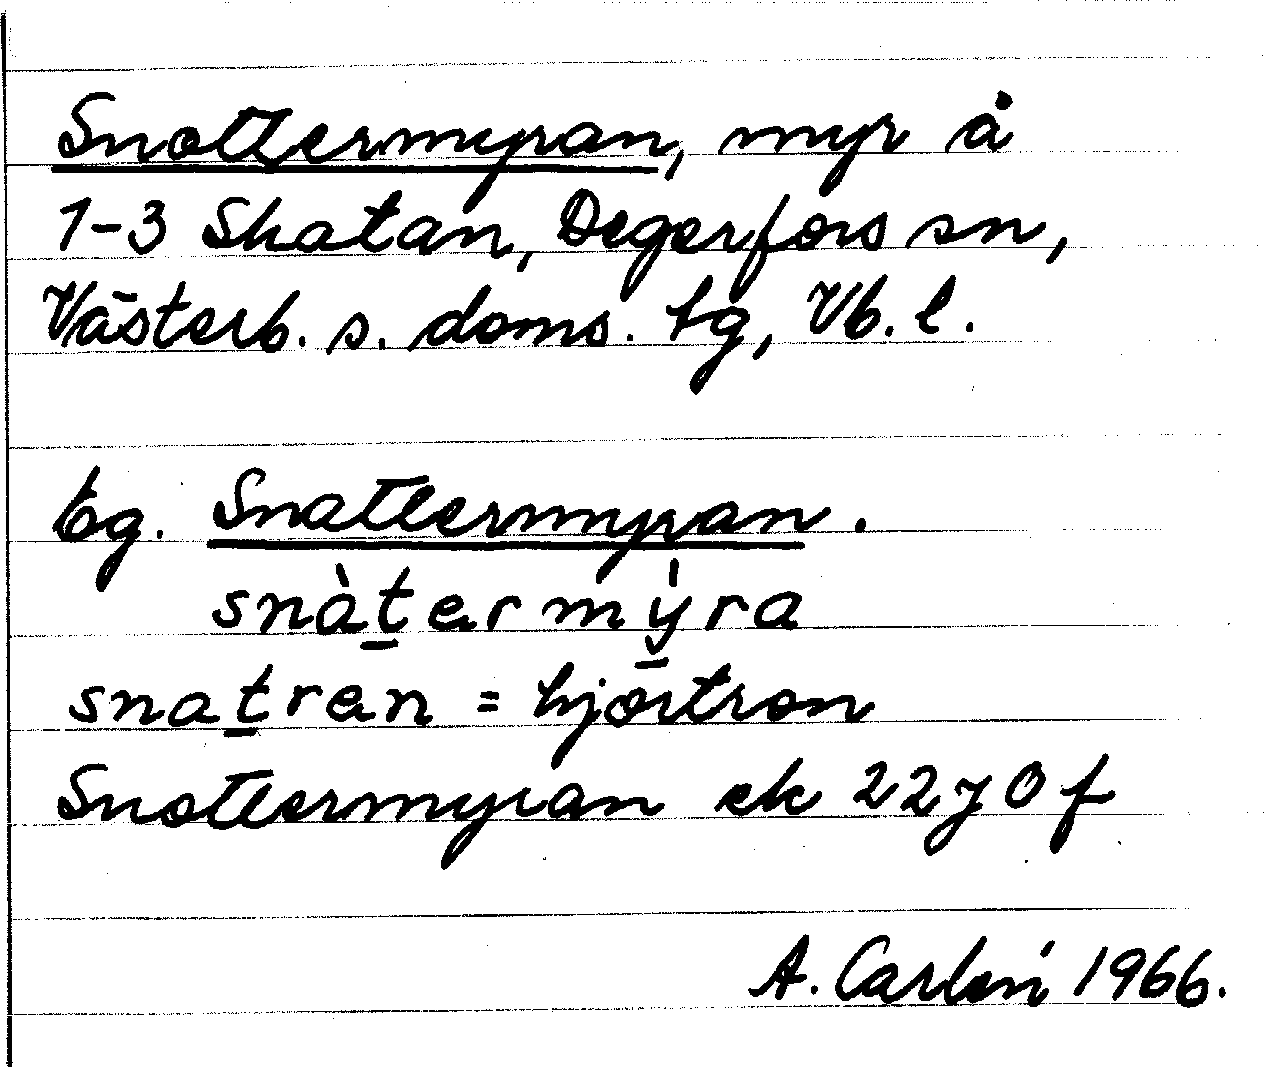 Snottermyran, myr å
1-3 Skatan, Degerfors sn,
Västerb. s. doms. tg, Vb. l.
Eg. Snattermyran.
snàt̲ermy̲̍ra
snat̲ren = hjortron
Snottermyran ek 22j0f
A. Carlén 1966.